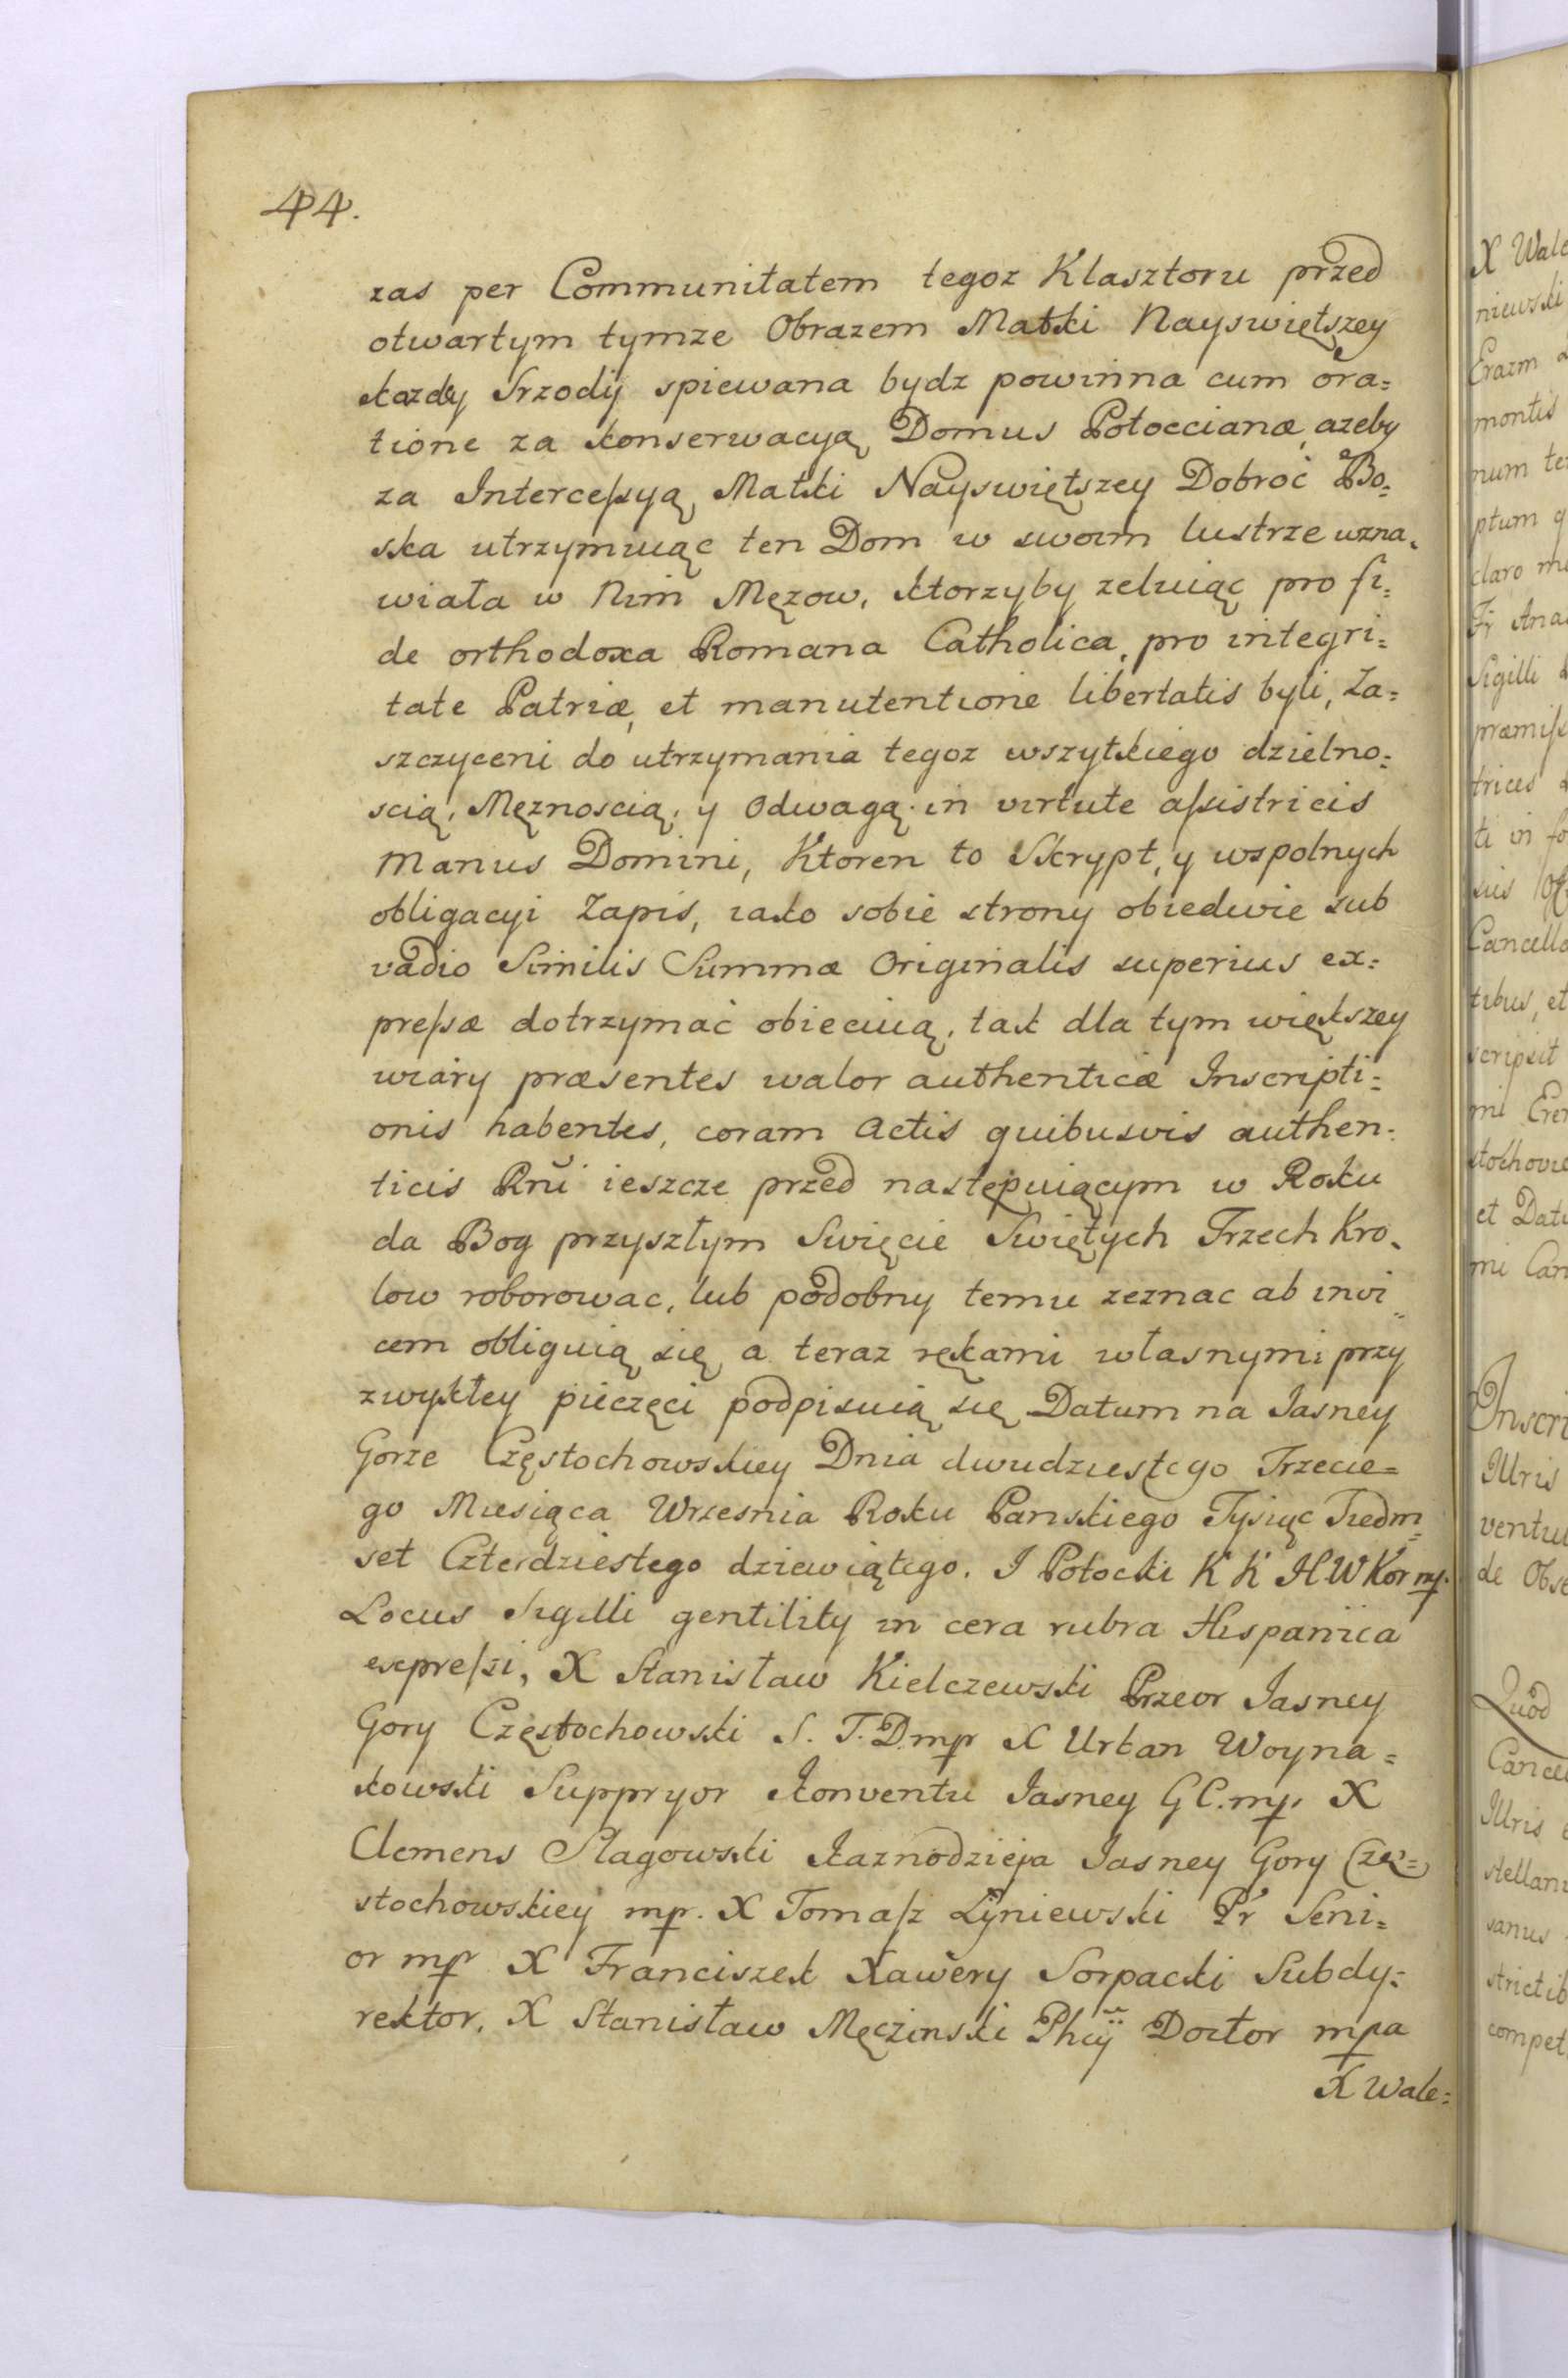 44.
zas per Communitatem tegoz Klasztoru przed
otwartym tymze Obrazem Matki Nayswiętszey
kazdey Srzody spiewana bydz powinna cum ora=
tione za konserwacyą Domus Potoccianæ, azeby
za Interceſsyą Matki Nayswiętszey Dobroć Bo=
ska utrzymuiąc ten Dom w swoim lustrze wzna=
wiała w Nim Męzow, ktorzyby zeluiąc pro fi=
de orthodoxa Romana Catholica, pro integri=
tate Patriæ, et manutentione libertatis byli, Za=
szczyceni do utrzymania tegoz wszytkiego dzielno=
scią, Męznoscią, y Odwagą in virtute aſsistricis
Manus Domini, Ktoren to Skrypt, y wspolnych
obligacyi Zapis, iako sobie strony obiedwie sub
vadio Similis Summæ Originalis superius ex=
preſsæ dotrzymać obiecuią, tak dla tym większey
wiary præsentes walor authenticæ Inscripti=
onis habentes, coram Actis quibusvis authen=
ticis Rni ieszcze przed następuiącym w Roku
da Bog przyszłym Swięcie Swiętych Trzech Kro=
low roborowac, lub podobny temu zeznac ab invi=
cem obliguią się, a teraz rękami własnymi przy
zwykłey pieczęci podpisuią się Datum na Iasney
Gorze Częstochowskiey Dnia dwudziestego Trzecie=
go Miesiąca Wrzesnia Roku Panskiego Tysiąc Siedm=
set Czterdziestego dziewiątego. I Potocki K K H W Kor mp.
Locus Sigilli gentility in cera rubra Hispanica
expreſsi, X Stanisław Kielczewski Przeor Iasney
Gory Częstochowski S. T. D. mp X Urban Woyna=
kowski Suppryor Konventu Iasney G C. mp. X
Clemens Slagowski Kaznodzieja Iasney Gory Czę=
stochowskiey mp. X Tomaſz Łyniewski Pr Seni=
or mp X Franciszek Xawery Sorpacki Subdy=
rektor, X Stanisław Męczinski Phiÿ Doctor mpa
X Wale=